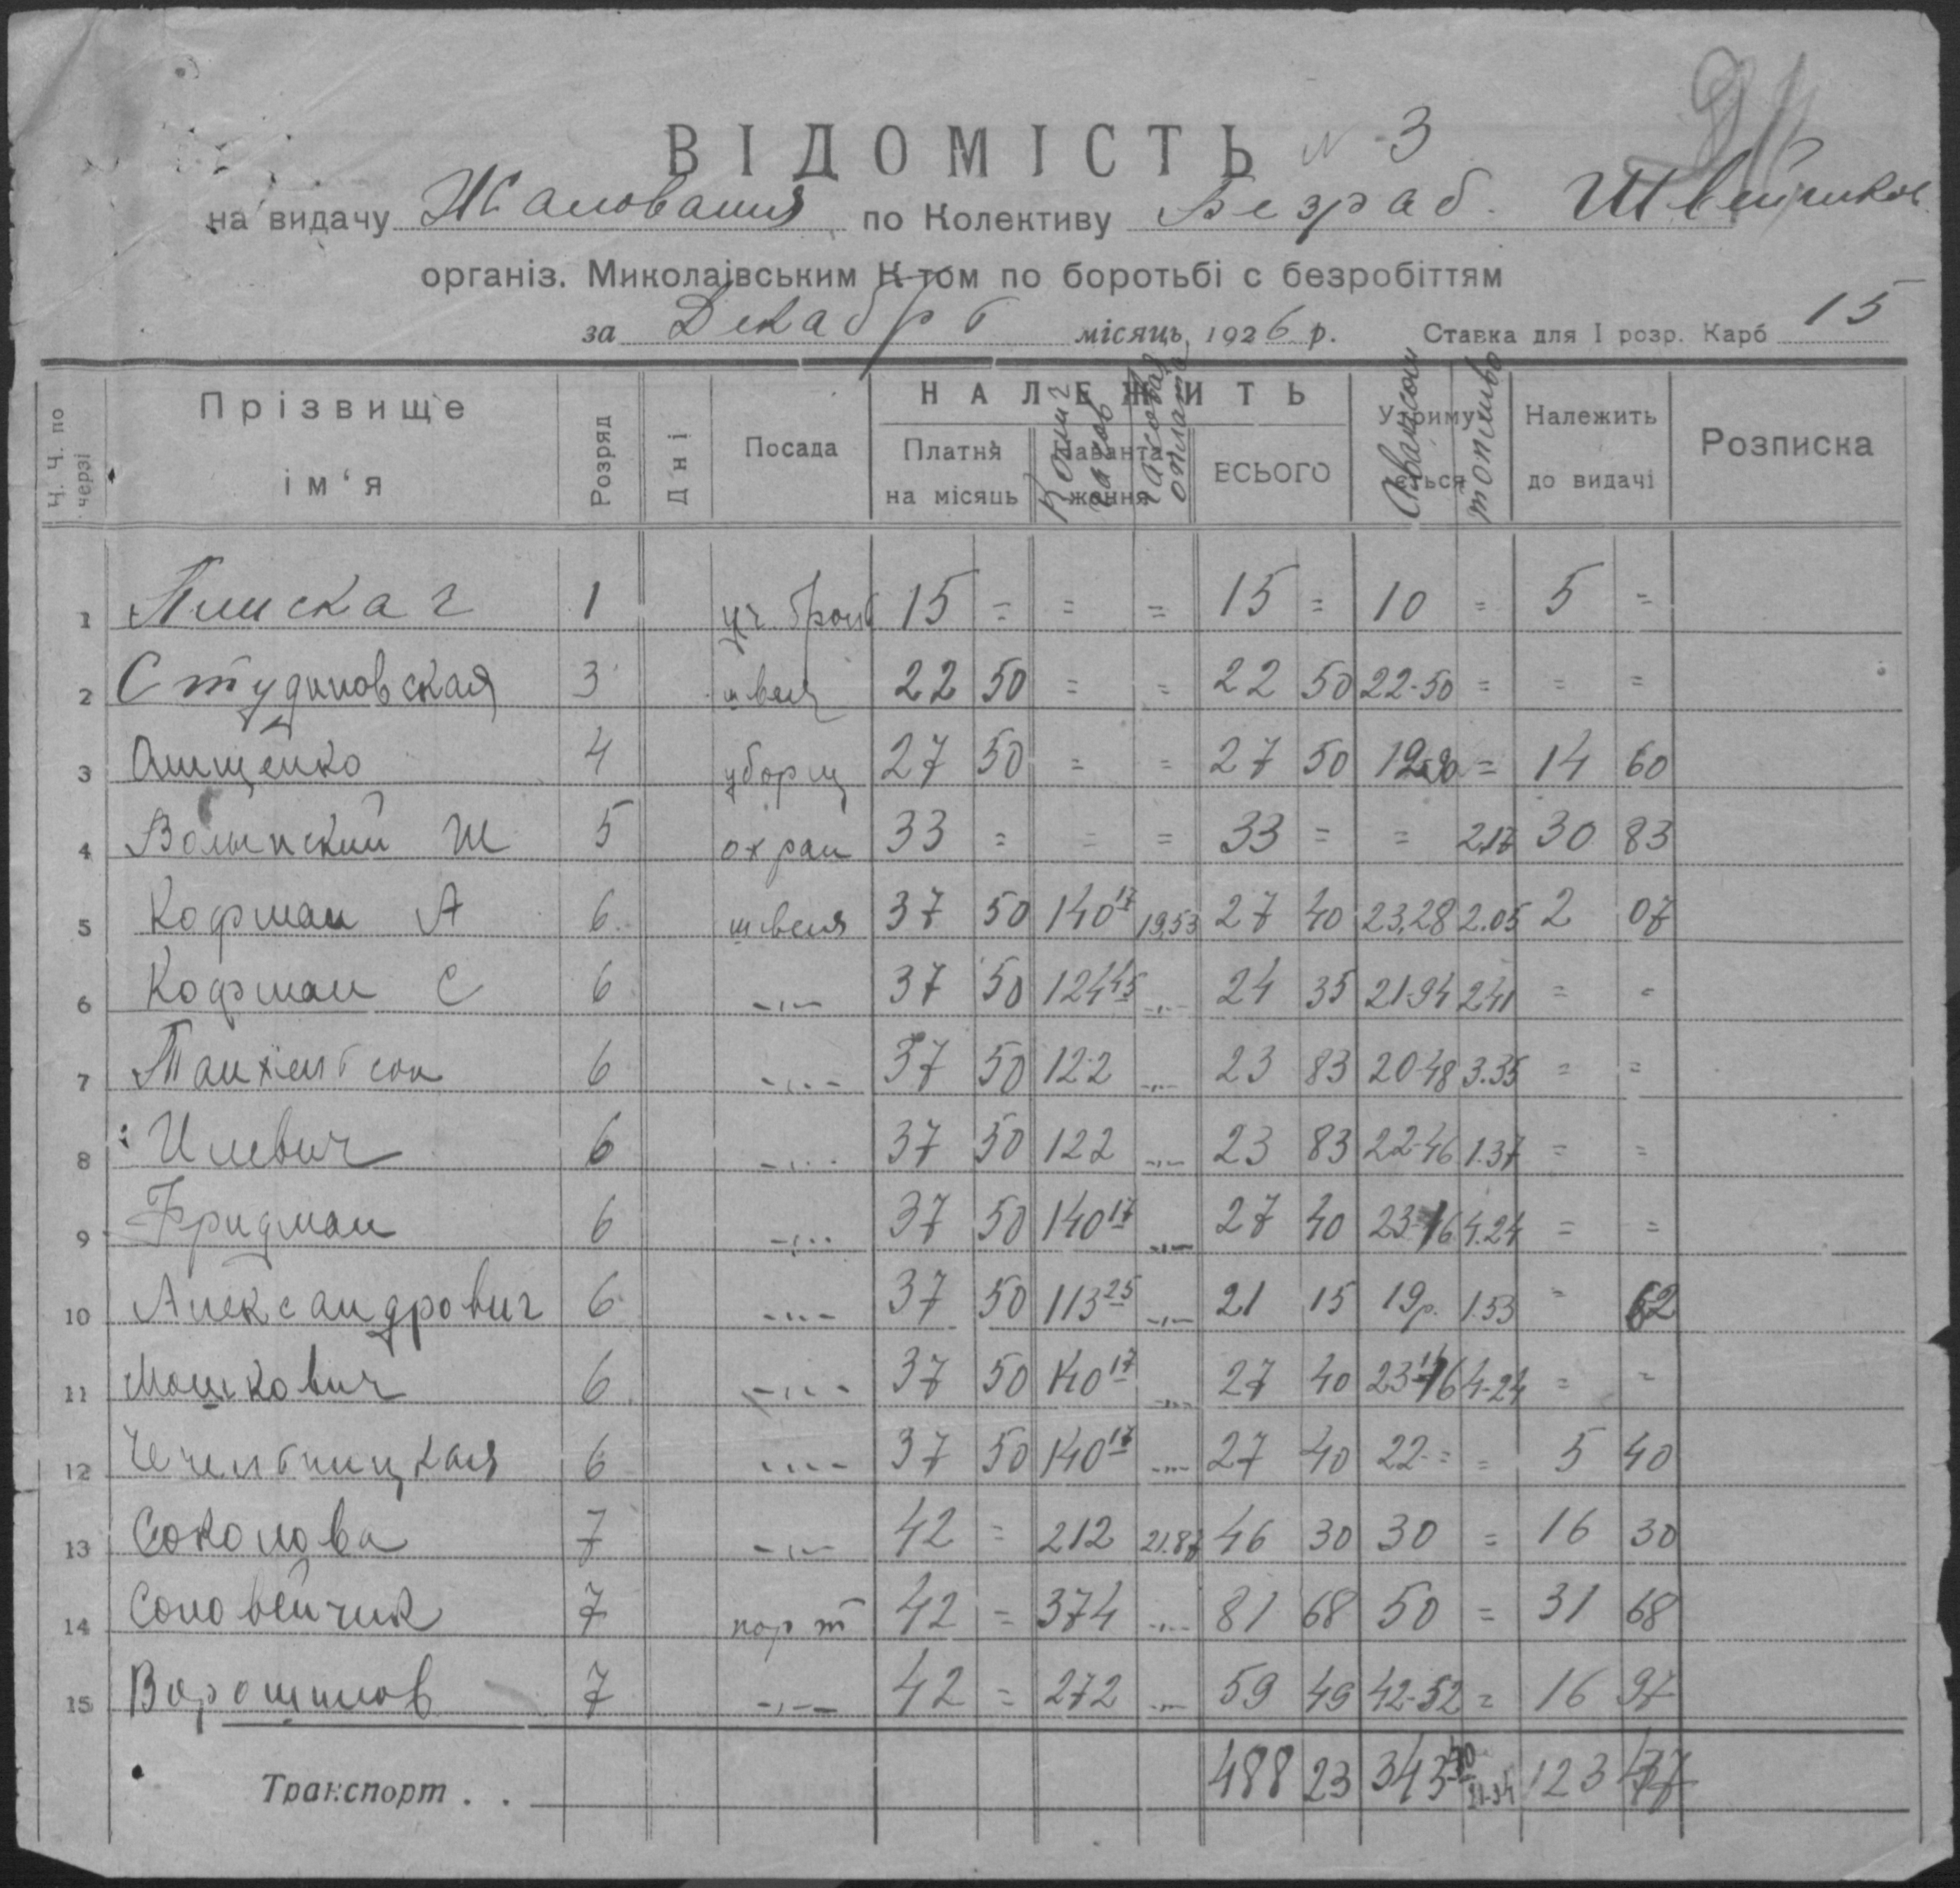 ВІДОМІСТЬ N 3
на видачу Жалования по Колективу Безраб. Швейников
організ. Миколаівським К-том по боротьбі с безробіттям
за Декабрь місяць 1926 р. Ставка для І розр. Карб 15
Ч. Ч. по черзі Прізвище ім'я Розряд Дні Посада НАЛЕЖИТЬ Платня на місяць Колич часов ВСЬОГО Авансом топливо Належить до видачі Розписка
1 1 15 = = = 15 = 10 = 5 =
2 Студиновская 3 швея 22 50 = = 22 50 22-50 = = =
3 Онищенко 4 уборщ 27 50 = = 27 50 = 14 60
4 Волынский Ш 5 охран 33 = = = 33 = = 2.17 30 83
5 Кофман А 6 швея 37 50 140 17 19,53 27 40 23,28 2.05 2 07
6 Кофман С 6 -"- 37 50 124 45 -"- 24 35 21.94 2.41 = =
7 6 -"- 37 50 122 -"- 23 83 20-48 3.35 = =
8 Илевич 6 -"- 37 50 122 -"- 23 83 22-46 1.37 = =
9 Фридман 6 -"- 37 50 140 17 -"- 27 40 23-16 4.24 = =
10 Александрович 6 -"- 37 50 113 25 -"- 21 15 19р. 1.53 = 62
11 Мошкович 6 -"- 37 50 140 17 -"- 27 40 23 16 4-24 = =
12 Чечельницкая 6 -"- 37 50 140 17 -"- 27 40 22 = = 5 40
13 Соколова 7 -"- 42 = 212 21.87 46 30 30 = 16 30
14 Соловейчик 7 порт 42 = 374 -"- 81 68 50 = 31 68
15 Ворошилов 7 -"- 42 = 272 -"- 59 49 42-52 = 16 97
Транспорт . . 488 23 343 123